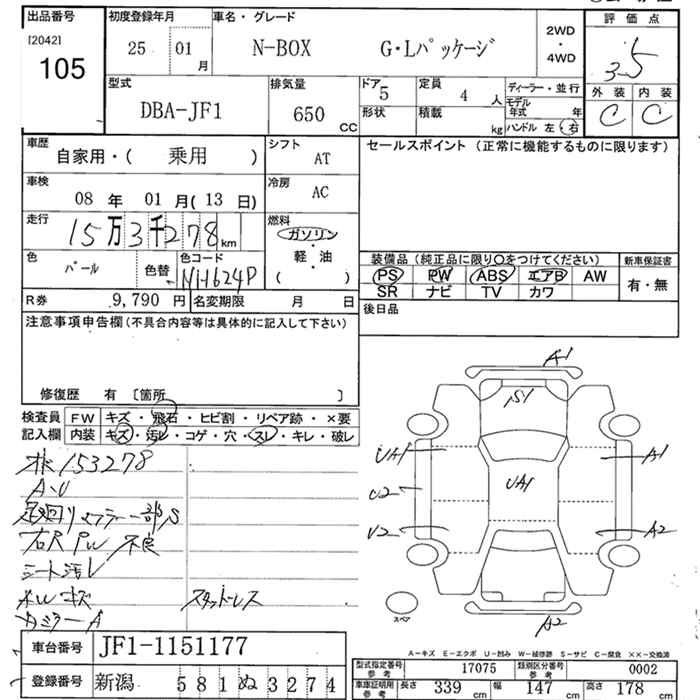 出品番号 初度登録年月 車名・グレード 評価点
[2042]
105
25 01 月 N-BOX G・Lパッケージ 2WD ・ 4WD 3.5
型式 排気量 ドア 定員 ディーラー・並行 外装 内装
DBA-JF1 650 CC 5 4 人 C C
形状 積載 kg モデル年式 年
ハンドル 左 右
車歴 自家用・( 乗用 ) シフト AT セールスポイント (正常に機能するものに限ります)
車検 08 年 01 月 ( 13 日) 冷房 AC
走行 15万3千278 km 燃料 ガソリン ・ 軽油 ・ ( )
色 パール 色替 色コード NH624P
装備品 (純正品に限り○をつけてください) 新車保証書
PS PW ABS エアB AW 有・無
SR ナビ TV カワ
R券 9,790 円 名変期限 月 日 後日品
注意事項申告欄 (不具合内容等は具体的に記入して下さい)
修復歴 有 〔箇所 〕
検査員 FW キズ・飛石・ヒビ割・リペア跡・×要
記入欄 内装 キズ・汚レ・コゲ・穴・スレ・キレ・破レ
153278
A・U
足廻リマフラー部S
右尺PW 不良
シート汚レ
AWキズ スタッドレス
ミラーA
A1
S1
UA1 A1
U2 UA1
U2 A2
スペア A2
A-キズ E-エクボ U-凹み W-補修跡 S-サビ C-腐食 ××-交換済
車台番号 JF1-1151177
登録番号 新潟 581 ぬ 3274
型式指定番号 参考 17075 類別区分番号 参考 0002
車庫証明用 参考 長さ 339 cm 幅 147 cm 高さ 178 cm